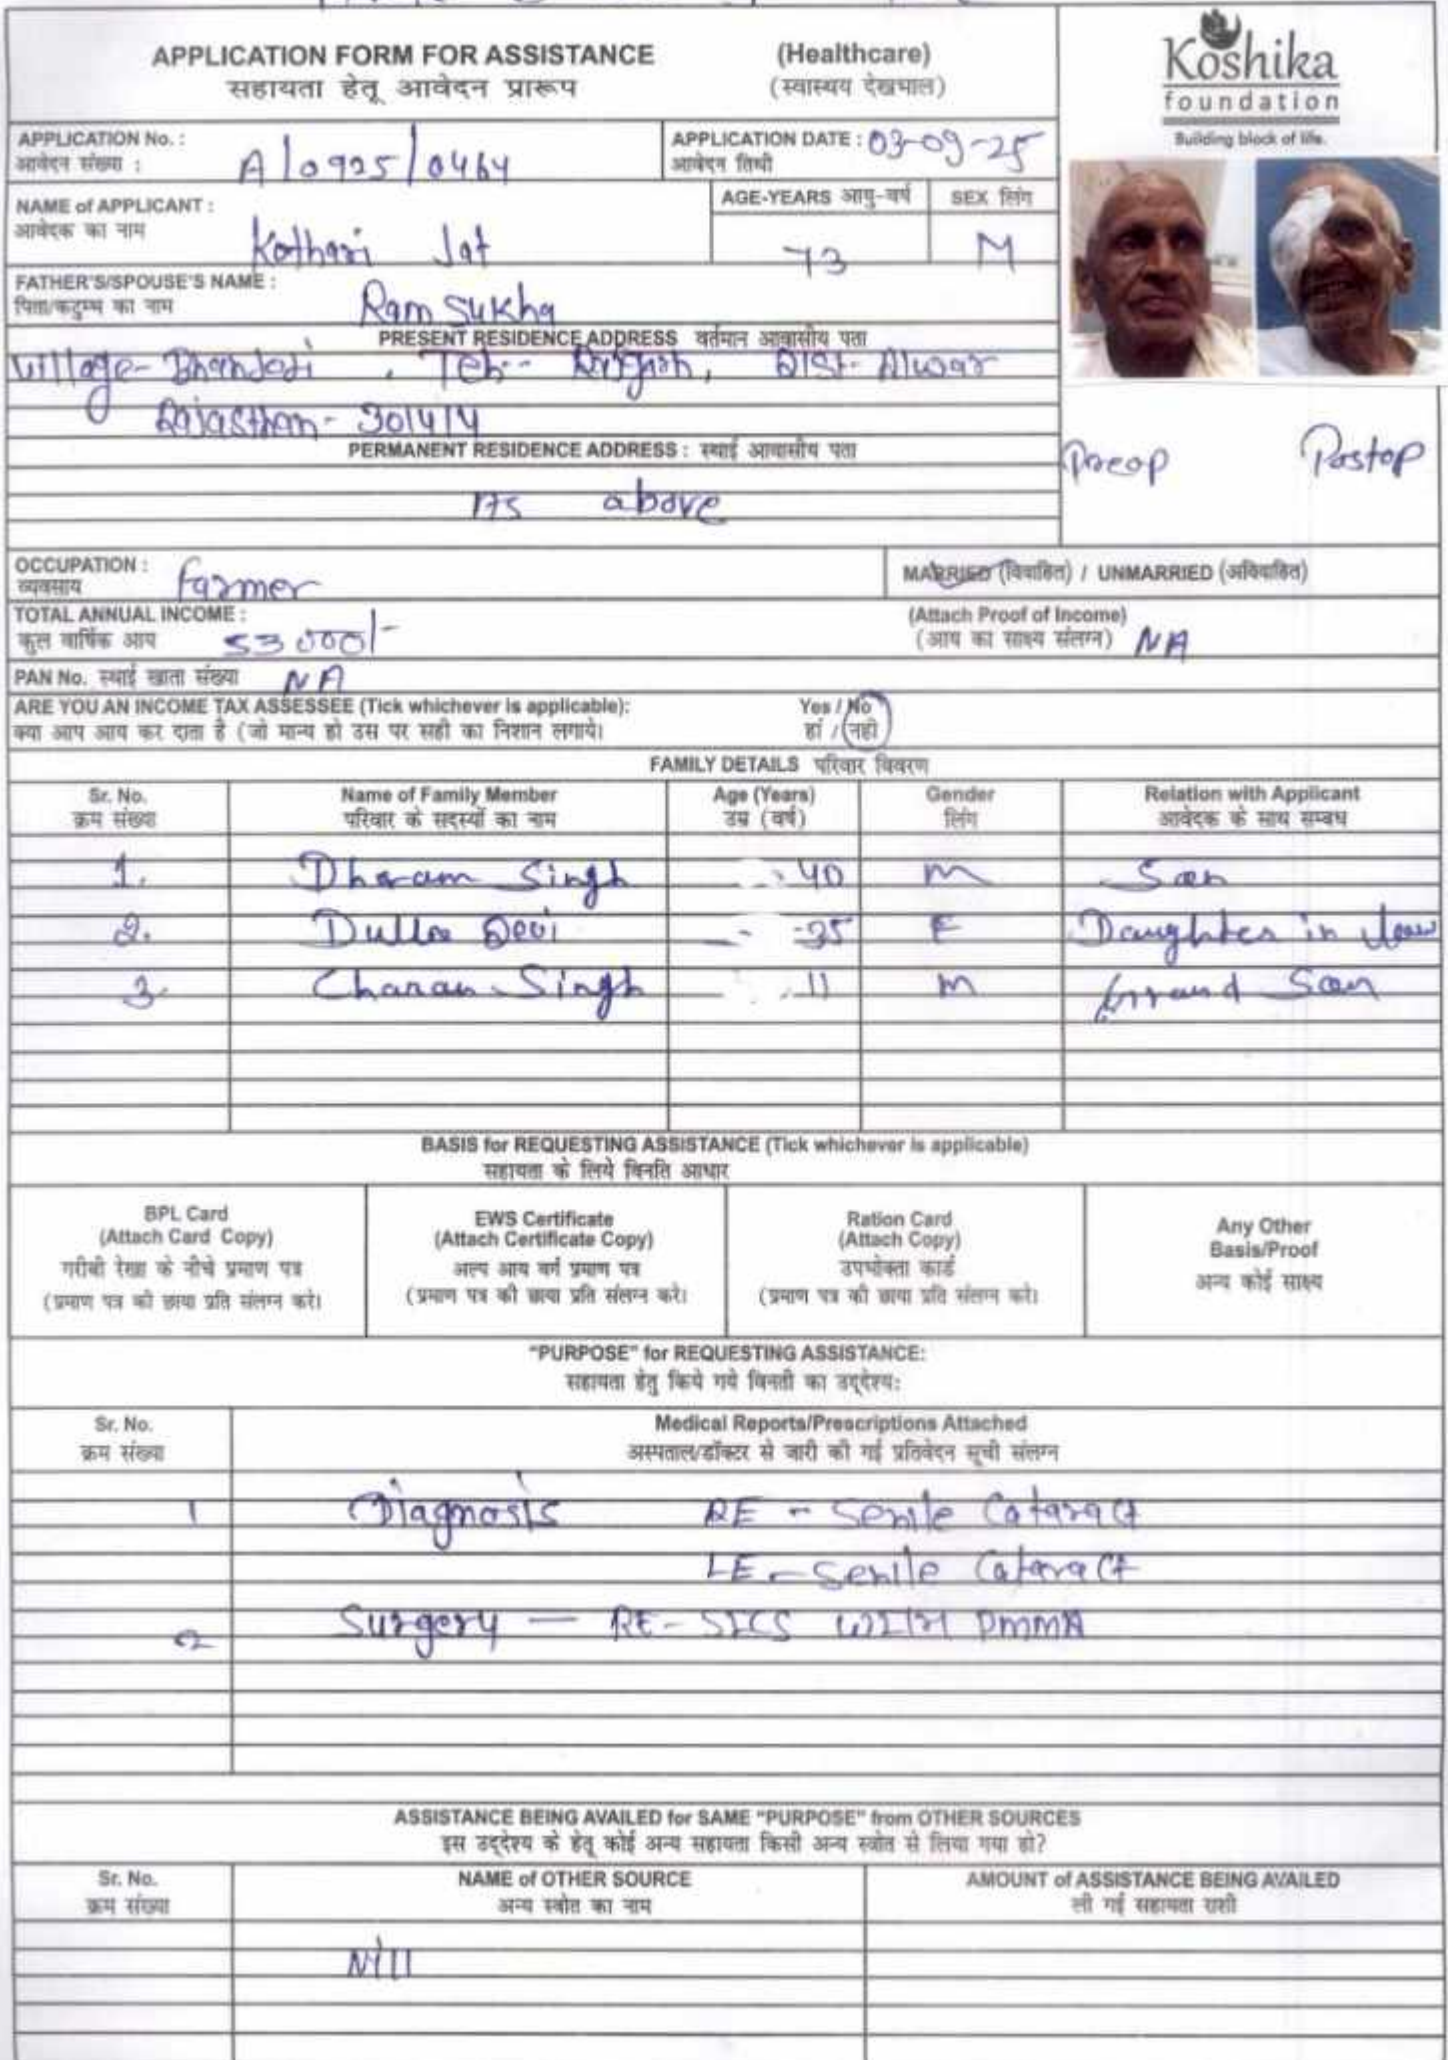 APPLICATION FORM FOR ASSISTANCE (Healthcare)
सहायता हेतू आवेदन प्रारूप (स्वास्थय देखभाल)
Koshika
foundation
Building block of life.
APPLICATION No. : A/0925/0464
आवेदन संख्या :
APPLICATION DATE : 03-09-25
आवेदन तिथी
NAME of APPLICANT : Kothari Jat
आवेदक का नाम
AGE-YEARS आयु-वर्ष 73
SEX लिंग M
FATHER'S/SPOUSE'S NAME : Ram Sukha
पिता/कटुम्ब का नाम
PRESENT RESIDENCE ADDRESS वर्तमान आवासीय पता
Village- , Teh-- Rajgarh, Dist- Alwar
Rajasthan- 301414
PERMANENT RESIDENCE ADDRESS : स्थाई आवासीय पता
As above
Preop Postop
OCCUPATION : Farmer
व्यवसाय
MARRIED (विवाहित) / UNMARRIED (अविवाहित)
TOTAL ANNUAL INCOME : 53000/-
कुल वार्षिक आय
(Attach Proof of Income)
(आय का साक्ष्य संलग्न) NA
PAN No. स्थाई खाता संख्या NA
ARE YOU AN INCOME TAX ASSESSEE (Tick whichever is applicable): Yes / No
क्या आप आय कर दाता है (जो मान्य हो उस पर सही का निशान लगाये। हां / नही
FAMILY DETAILS परिवार विवरण
Sr. No. Name of Family Member Age (Years) Gender Relation with Applicant
क्रम संख्या परिवार के सदस्यों का नाम उम्र (वर्ष) लिंग आवेदक के साथ सम्बध
1. Dharam Singh 40 M Son
2. Dulla Devi 35 F Daughter in law
3. Charan Singh 11 M Grand Son
BASIS for REQUESTING ASSISTANCE (Tick whichever is applicable)
सहायता के लिये विनति आधार
BPL Card
(Attach Card Copy)
गरीबी रेखा के नीचे प्रमाण पत्र
(प्रमाण पत्र की छाया प्रति संलग्न करे।
EWS Certificate
(Attach Certificate Copy)
अल्प आय वर्ग प्रमाण पत्र
(प्रमाण पत्र की छाया प्रति संलग्न करे।
Ration Card
(Attach Copy)
उपभोक्ता कार्ड
(प्रमाण पत्र की छाया प्रति संलग्न करे।
Any Other
Basis/Proof
अन्य कोई साक्ष्य
"PURPOSE" for REQUESTING ASSISTANCE:
सहायता हेतु किये गये विनती का उद्देश्य:
Sr. No. Medical Reports/Prescriptions Attached
क्रम संख्या अस्पताल/डॉक्टर से जारी की गई प्रतिवेदन सूची संलग्न
1 Diagnosis RE - Senile Cataract
LE - Senile Cataract
2 Surgery - RE- SICS WITH PMMA
ASSISTANCE BEING AVAILED for SAME "PURPOSE" from OTHER SOURCES
इस उद्देश्य के हेतू कोई अन्य सहायता किसी अन्य स्त्रोत से लिया गया हो?
Sr. No. NAME of OTHER SOURCE AMOUNT of ASSISTANCE BEING AVAILED
क्रम संख्या अन्य स्त्रोत का नाम ली गई सहायता राशी
Nill